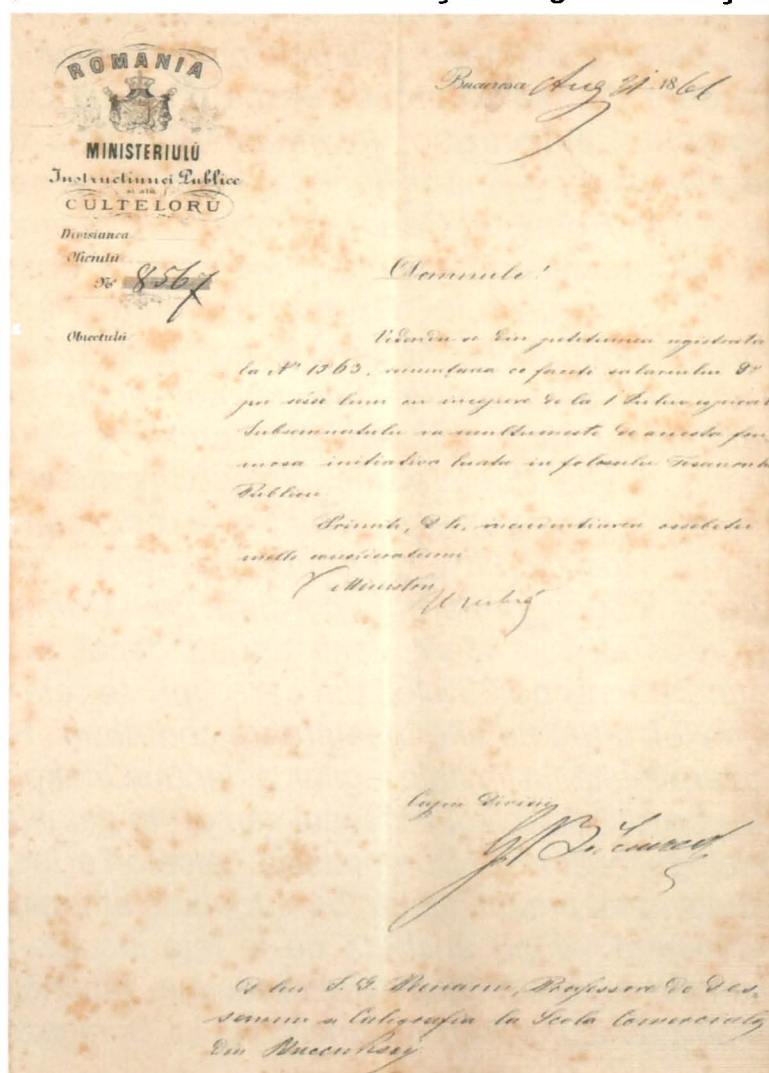 ROMANIA
MINISTERIULŬ
Instructiunei Publice
si alŭ
CULTELORŬ
Bucuresci Aug 31 1866
Divisiunea
Oficiulŭ
No 8567
Domnule!
Obiectulŭ
Vedendu se din petitiunea registrata
la No 1363, renuntarea ce faceti salariului
pe sése luni cu incepere de la 1 Iuliu
Subsemnatulu va multumeste de acesta fru
mosa initiativa luata in folosulu Tesaurului
Publicu
Primiti, D le, incredintiarea osebitei
melle consideratiuni
Ministru
Capu Divisii
D lui Professore de Des-
semnu si Caligrafia la Scola Comerciala
Din Bucuresci